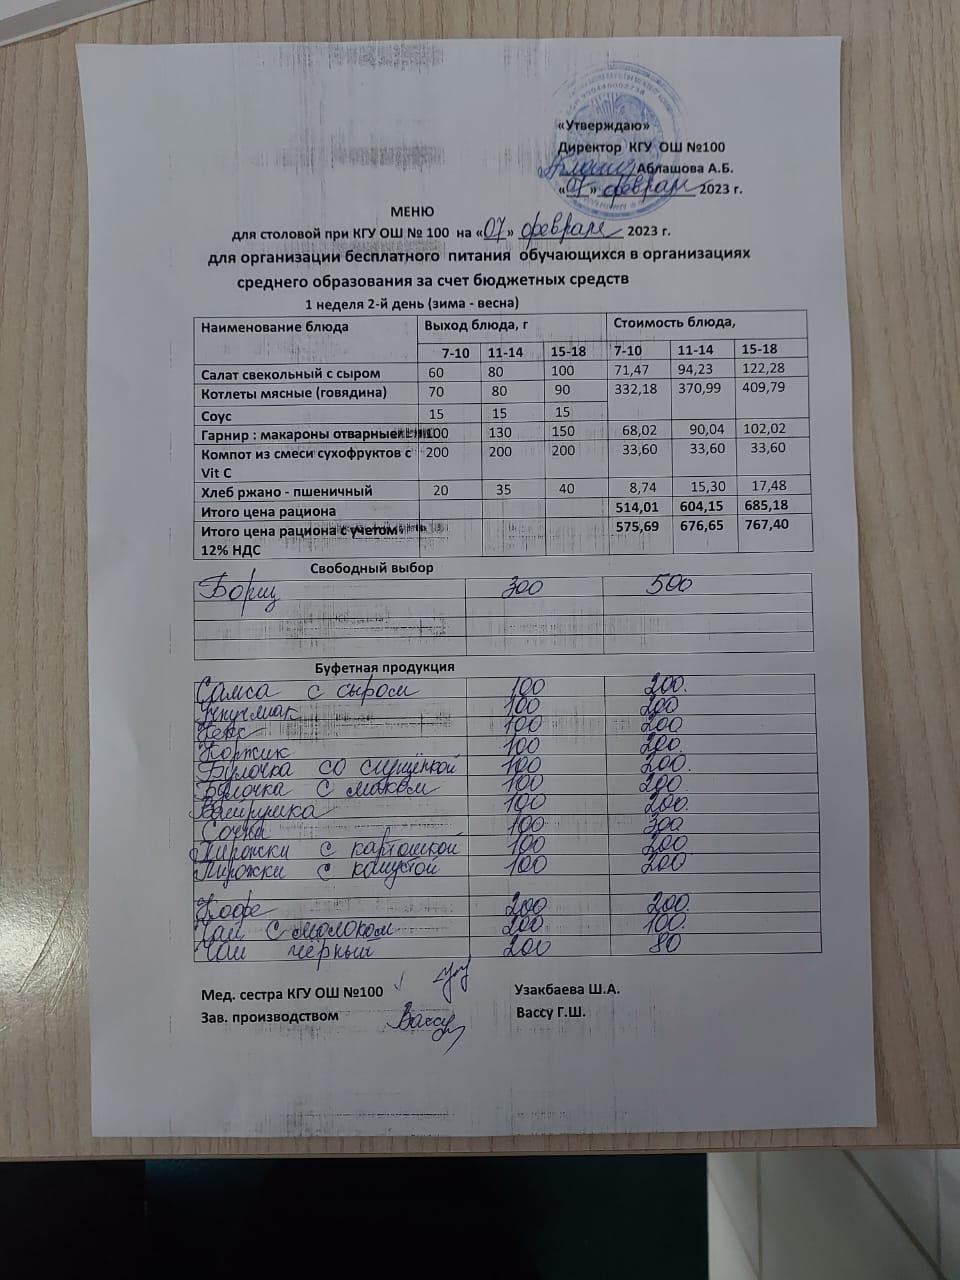 «Утверждаю»
Директор КГУ ОШ №100
Аблашова А.Б.
«07» февраля 2023 г.
МЕНЮ
для столовой при КГУ ОШ № 100 на «07» февраля 2023 г.
для организации бесплатного питания обучающихся в организациях
среднего образования за счет бюджетных средств
1 неделя 2-й день (зима - весна)
Наименование блюда Выход блюда, г Стоимость блюда,
7-10 11-14 15-18 7-10 11-14 15-18
Салат свекольный с сыром 60 80 100 71,47 94,23 122,28
Котлеты мясные (говядина) 70 80 90 332,18 370,99 409,79
Соус 15 15 15
Гарнир : макароны отварные 100 130 150 68,02 90,04 102,02
Компот из смеси сухофруктов с 200 200 200 33,60 33,60 33,60
Vit C
Хлеб ржано - пшеничный 20 35 40 8,74 15,30 17,48
Итого цена рациона 514,01 604,15 685,18
Итого цена рациона с учетом 575,69 676,65 767,40
12% НДС
Свободный выбор
Борщ 300 500
Буфетная продукция
Самса с сыром 100 200.
100 200
Кекс 100 200
Коржик 100 200.
Булочка со сгущёнкой 100 200.
Булочка с маком 100 200.
100 200.
Сочни 100 300
Пирожки с картошкой 100 200
Пирожки с капустой 100 200
Кофе 200 200.
Чай с молоком 200 100.
Чай чёрный 200 80
Мед. сестра КГУ ОШ №100 Узакбаева Ш.А.
Зав. производством Вассу Вассу Г.Ш.